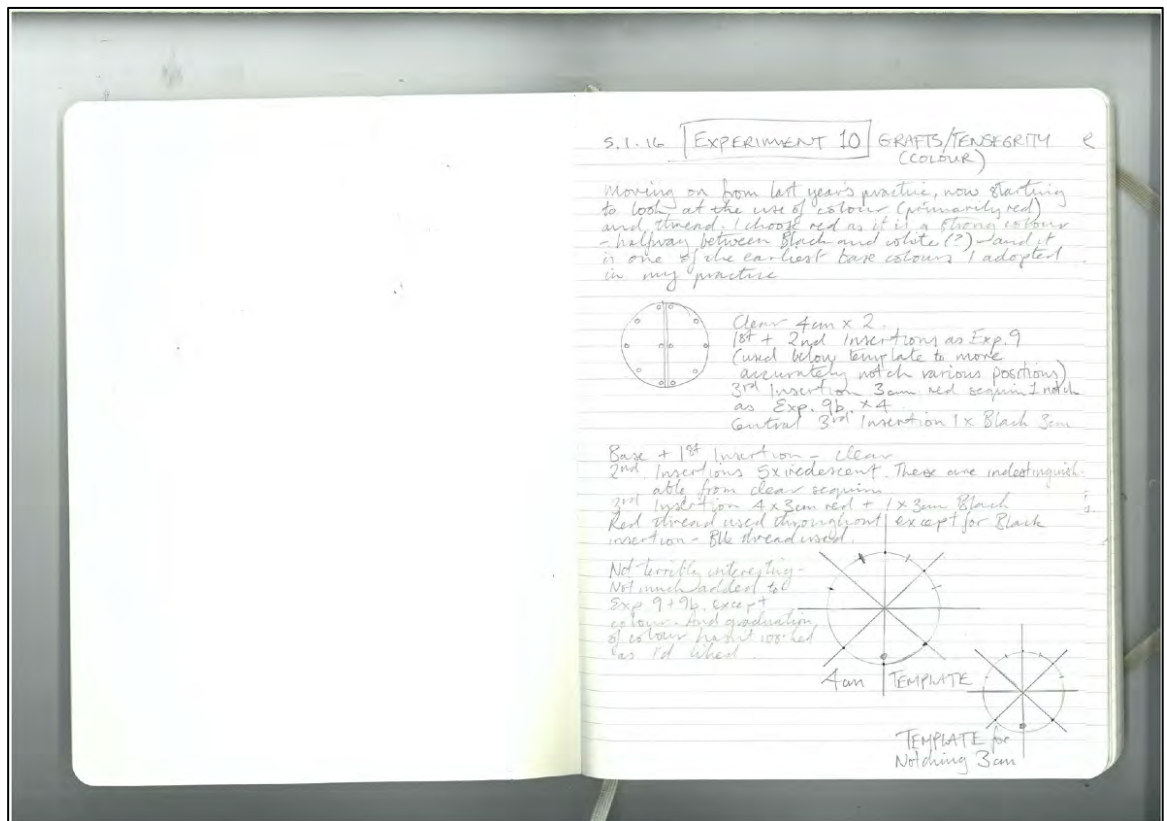 5.1.16 EXPERIMENT 10 GRAFTS/TENSEGRITY
(COLOUR)
Moving on from last year's practice, now starting
to look at the use of colour (primarily red)
and thread. I choose red as it is a strong colour
- halfway between Black and white (?) - and it
is one of the earliest base colours I adopted
in my practice
Clear 4cm x 2.
1st + 2nd Insertions as Exp. 9
(used below template to more
accurately notch various positions)
3rd Insertion 3cm red sequin 1 notch
as Exp. 9b. x 4
Central 3rd Insertion 1 x Black 3cm
Base + 1st Insertion - clear
2nd Insertions 5x iredescent. These are indestinguish-
able from clear sequins
3rd Insertion 4 x 3cm red + 1 x 3cm Black
Red thread used throughout except for Black
insertion - Blk thread used.
Not terribly interesting -
Not much added to
Exp 9 + 9b. except
colour. And graduation
of colour hasn't worked
as I'd liked.
4cm TEMPLATE
TEMPLATE for
Notching 3cm